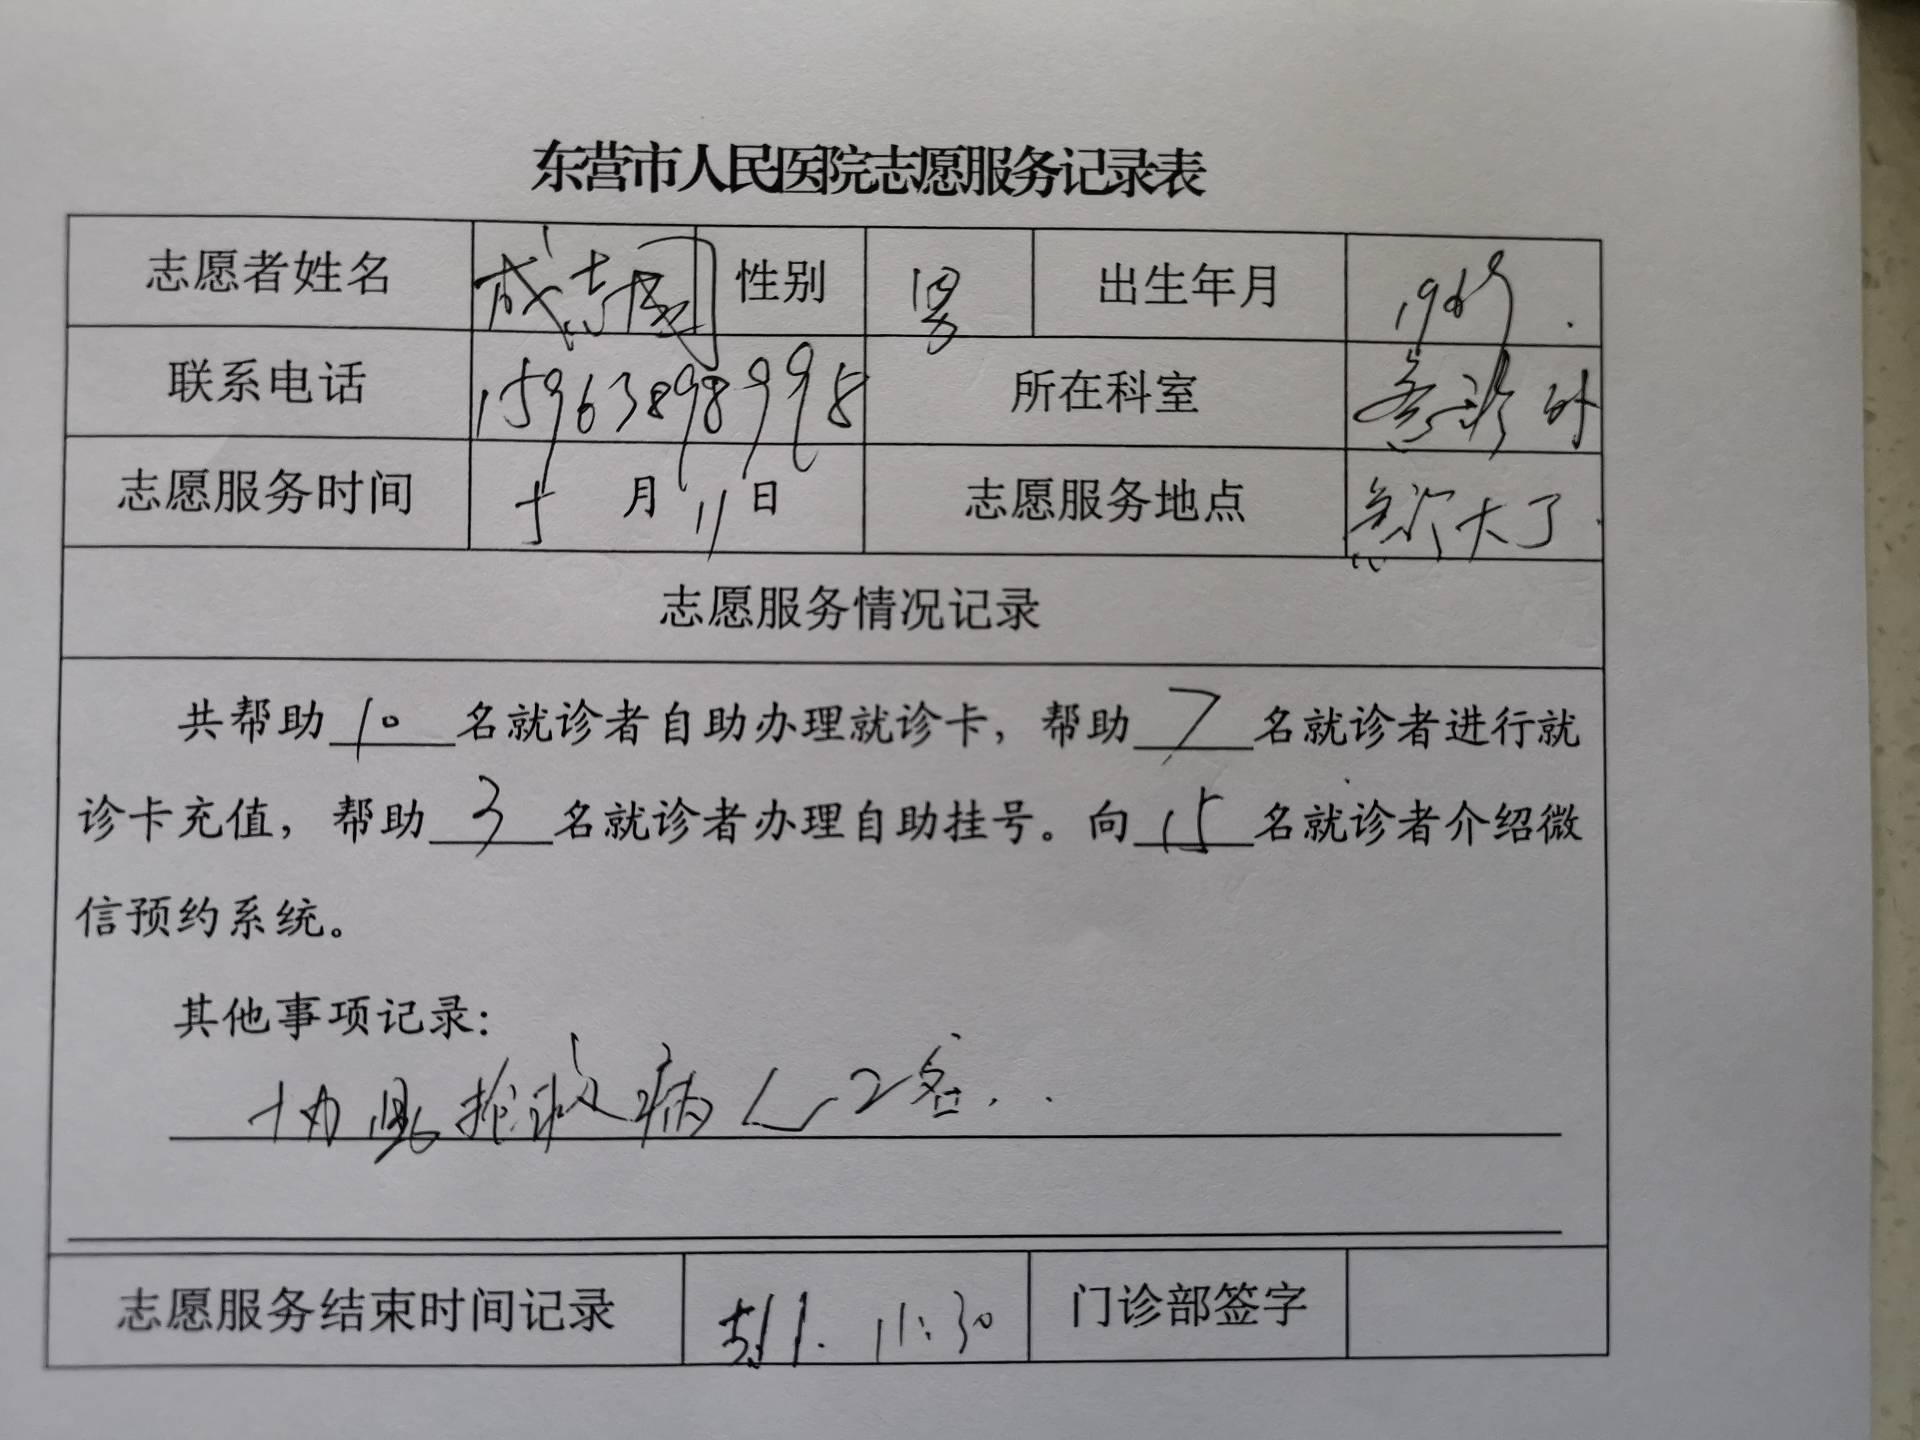 东营市人民医院志愿服务记录表
志愿者姓名 成志国 性别 男 出生年月
联系电话 15963898995 所在科室 急诊外
志愿服务时间 5 月 11 日 志愿服务地点 急诊大厅
志愿服务情况记录
共帮助 10 名就诊者自助办理就诊卡，帮助 7 名就诊者进行就
诊卡充值，帮助 3 名就诊者办理自助挂号。向 15 名就诊者介绍微
信预约系统。
其他事项记录：
协助抢救病人2名.
志愿服务结束时间记录 5.11. 11:30 门诊部签字